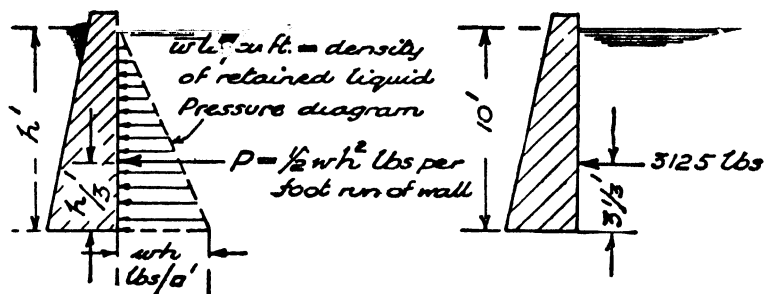 = density
of retained liquid
Pressure diagram
P = ½wh² lbs per
foot run of wall
h'
h'/3
wh
lbs/□'
10'
3125 lbs
3⅓'